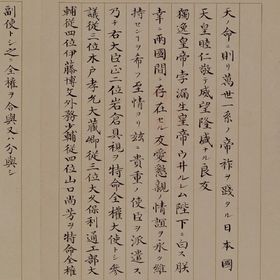 天ノ命ニ則リ萬世一系ノ帝祚ヲ踐タル日本國
天皇睦仁敬テ威望隆盛ナル良友
獨逸皇帝孛漏生皇帝ウ井ルレム陛下ニ白ス朕
幸ニ兩國間ニ存在セル友愛懇親ノ情誼ヲ永ク維
持センヿヲ布フノ至情ヨリ玆ニ貴重ノ使臣ヲ派遣ス
乃チ右大臣正二位岩倉具視ヲ特命全權大使トシ参
議從三位木戸孝允大藏卿從三位大久保利通工部大
輔從四位伊藤博文外務少輔從四位山口尚芳ヲ特命全權
副使トシ之ニ全權ヲ合與又ハ分與シ